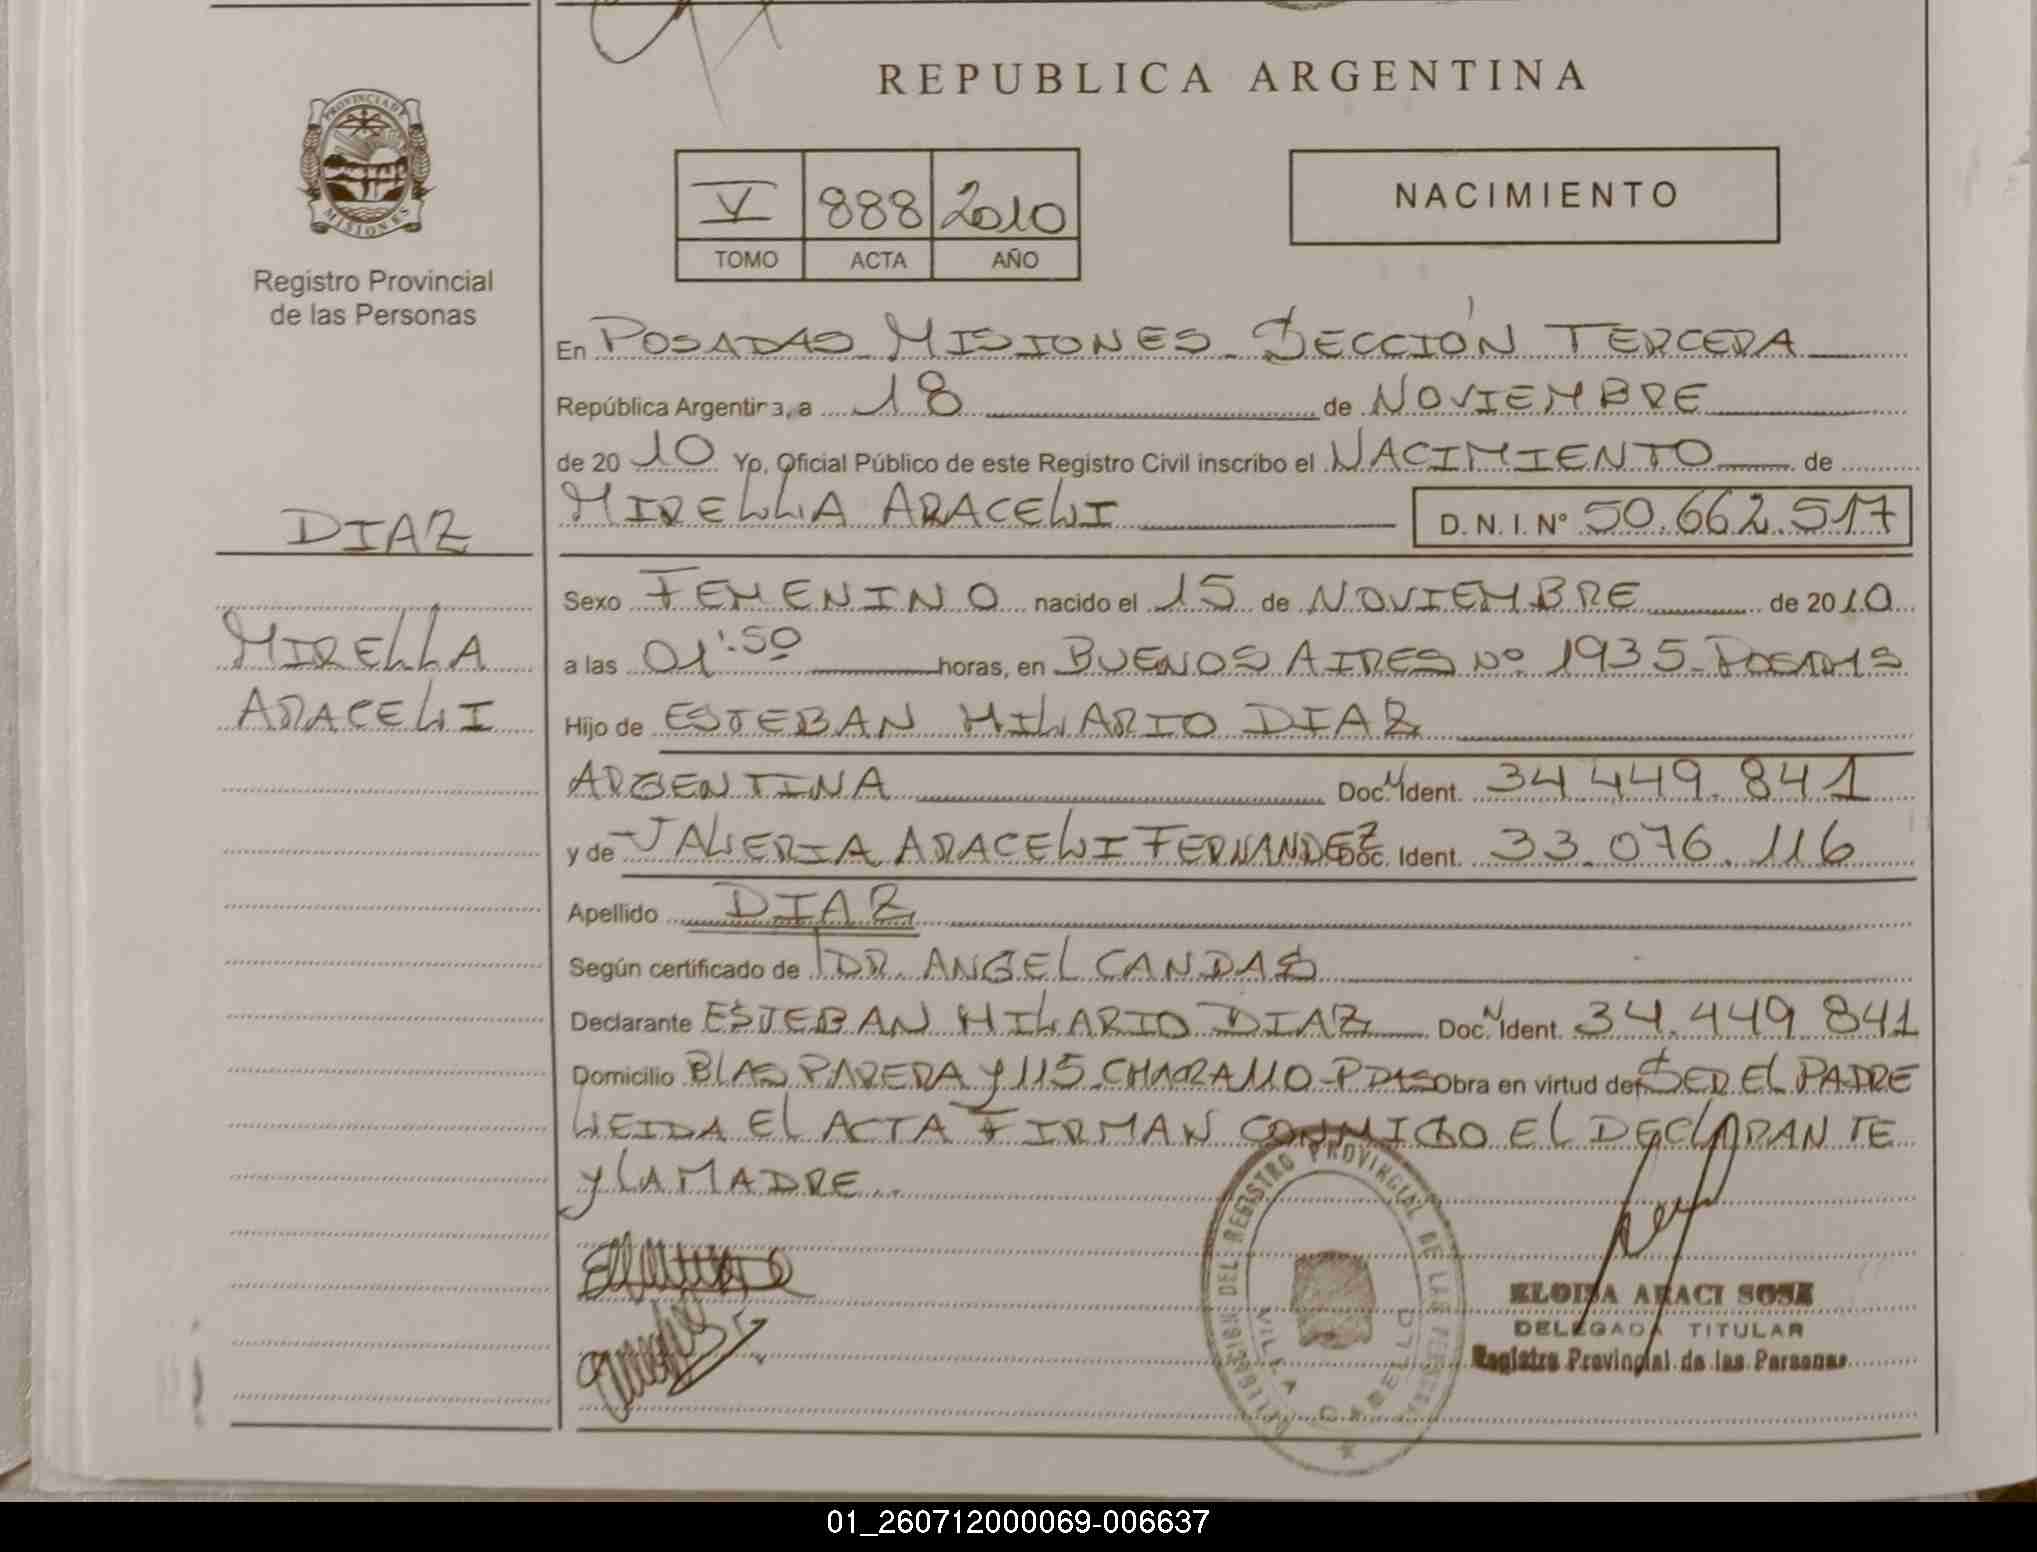 REPUBLICA ARGENTINA
PROVINCIA DE MISIONES
Registro Provincial
de las Personas
V 888 2010
TOMO ACTA AÑO
NACIMIENTO
En POSADAS MISIONES SECCIÓN TERCERA
República Argentina, a 18 de NOVIEMBRE
de 2010 Yo, Oficial Público de este Registro Civil inscribo el NACIMIENTO de
MIRELLA ARACELI D. N. I. Nº 50.662.517
DIAZ
MIRELLA
ARACELI
Sexo FEMENINO nacido el 15 de NOVIEMBRE de 2010
a las 01:50 horas, en BUENOS AIRES Nº 1935-POSADAS
Hijo de ESTEBAN HILARIO DIAZ
ARGENTINA Doc. Ident. 34.449.841
y de VALERIA ARACELI FERNANDEZ Doc. Ident. 33.076.116
Apellido DIAZ
Según certificado de DR. ANGEL CANDAS
Declarante ESTEBAN HILARIO DIAZ Doc. Ident. 34.449.841
Domicilio BLAS PARERA y 115-CHACRA 110-PDAS Obra en virtud de SER EL PADRE
LEIDA EL ACTA FIRMAN CONMIGO EL DECLARANTE
y LA MADRE.
DELEGACION DEL REGISTRO PROVINCIAL DE LAS PERSONAS
VILLA CABELLO
ELOISA ARACI SOSA
DELEGADA TITULAR
Registro Provincial de las Personas
01_260712000069-006637